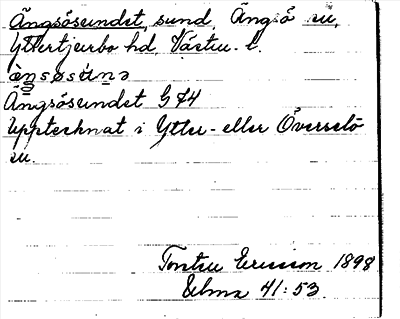 Ängsösundet, sund, Ängsö sn,
Yttertjurbo hd, Västm. l.
Ängsösundet G 74
Upptecknat i Ytter- eller Överselö
sn.
Torsten Ericsson 1898
41:53